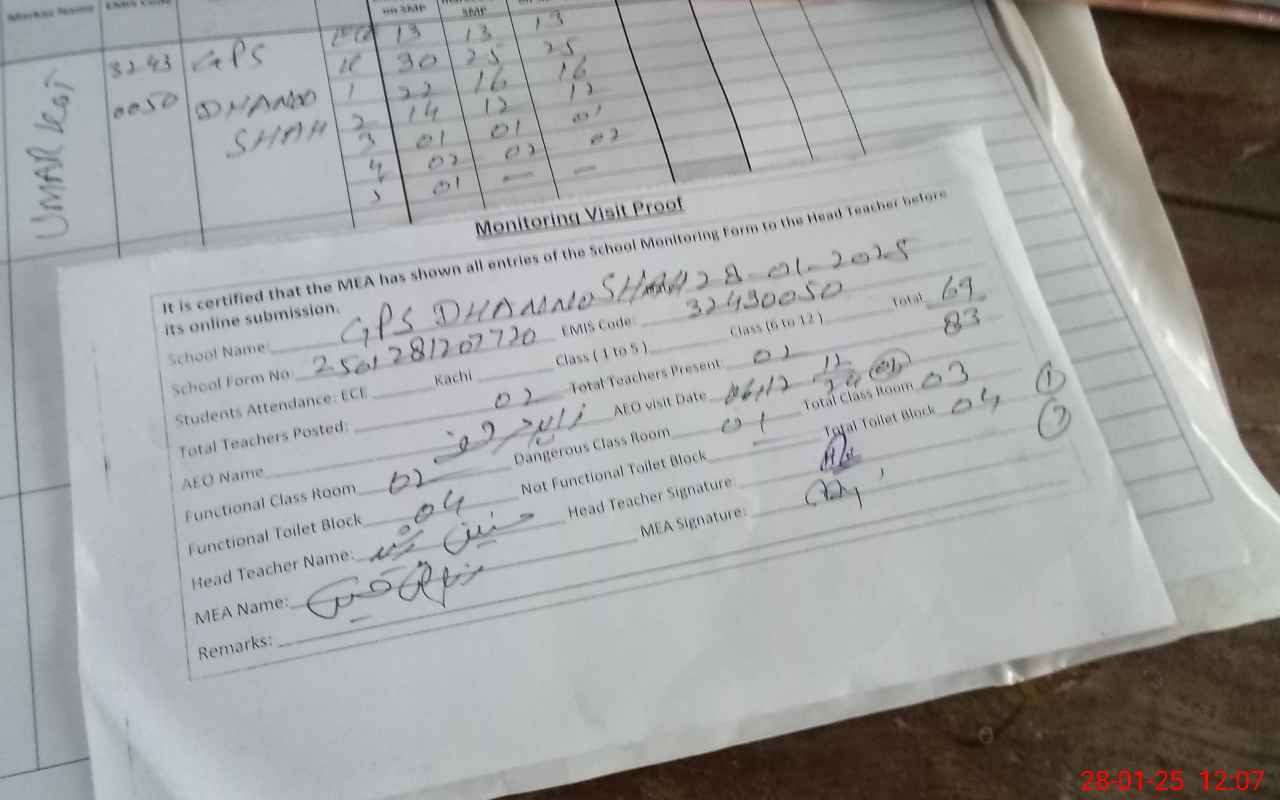 Markaz Name EMIS Code on SMP SMP
UMAR Kot 3243 0050 GPS DHANNO SHAH
ECE 13 13 13
K 30 25 25
1 22 16 16
2 14 12 12
3 01 01 01
4 02 02 02
5 01 — —
Monitoring Visit Proof
It is certified that the MEA has shown all entries of the School Monitoring Form to the Head Teacher before
its online submission.
School Name: GPS DHANNO SHAH 28-01-2025
School Form No: 2501281207720 EMIS Code: 32430050
Students Attendance: ECE Kachi Class ( 1 to 5 ) Class (6 to 12 ) Total 69
83
Total Teachers Posted: 02 Total Teachers Present: 02
AEO Name AEO visit Date 06/12 12 24 02
Functional Class Room 02 Dangerous Class Room 01 Total Class Room 03 1
Functional Toilet Block 04 Not Functional Toilet Block — Total Toilet Block 04
Head Teacher Name: Head Teacher Signature:
MEA Name: MEA Signature:
Remarks:
28-01-25 12:07